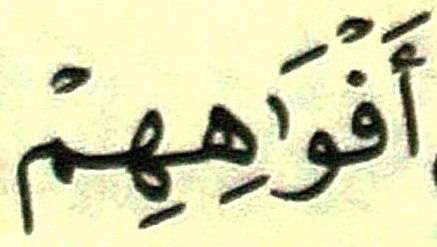 أَفْوَاهِهِمْ